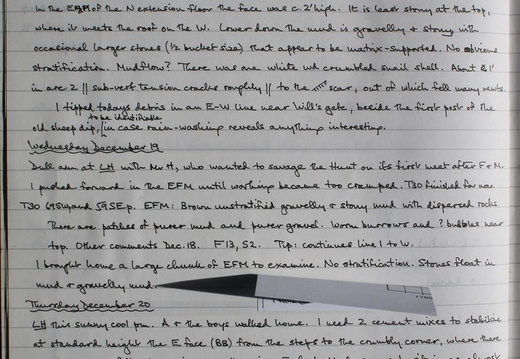 In the EFM of the N extension floor the face was c. 2' high. It is least stony at the top,
where it meets the roof on the W. Lower down the mud is gravelly & stony with
occasional larger stones (½ bucket size) that appear to be matrix-supported. No obvious
stratification. Mudflow? There was one white wd crumbled snail shell. About &1'
in are 2 || sub-vert tension cracks roughly || to the scar, out of which fell many newts.
I tipped todays debris in an E-W line near Will's gate, beside the first post of the
to be identifiable
old sheep dip, in case rain-washing reveals anything interesting.
Wednesday December 19
Dull am at LH with Mr H, who wanted to savage the Hunt on its first meet after F & M.
I pushed forward in the EFM until working became too cramped. T30 finished for now.
T30 69SW and 59SE p. EFM: Brown unstratified gravelly & stony mud with dispersed rocks.
There are patches of purer mud and purer gravel. Worm burrows and ? bubbles near
top. Other comments Dec. 18. F13, S2. Tip: continues line 1 to W.
I brought home a large chunk of EFM to examine. No stratification. Stones float in
mud & gravelly mud.
Thursday December 20
LH this sunny cool pm. A & the boys walked home. I need 2 cement mixes to stabilise
at standard height the E face (BB) from the steps to the crumbly corner, where there